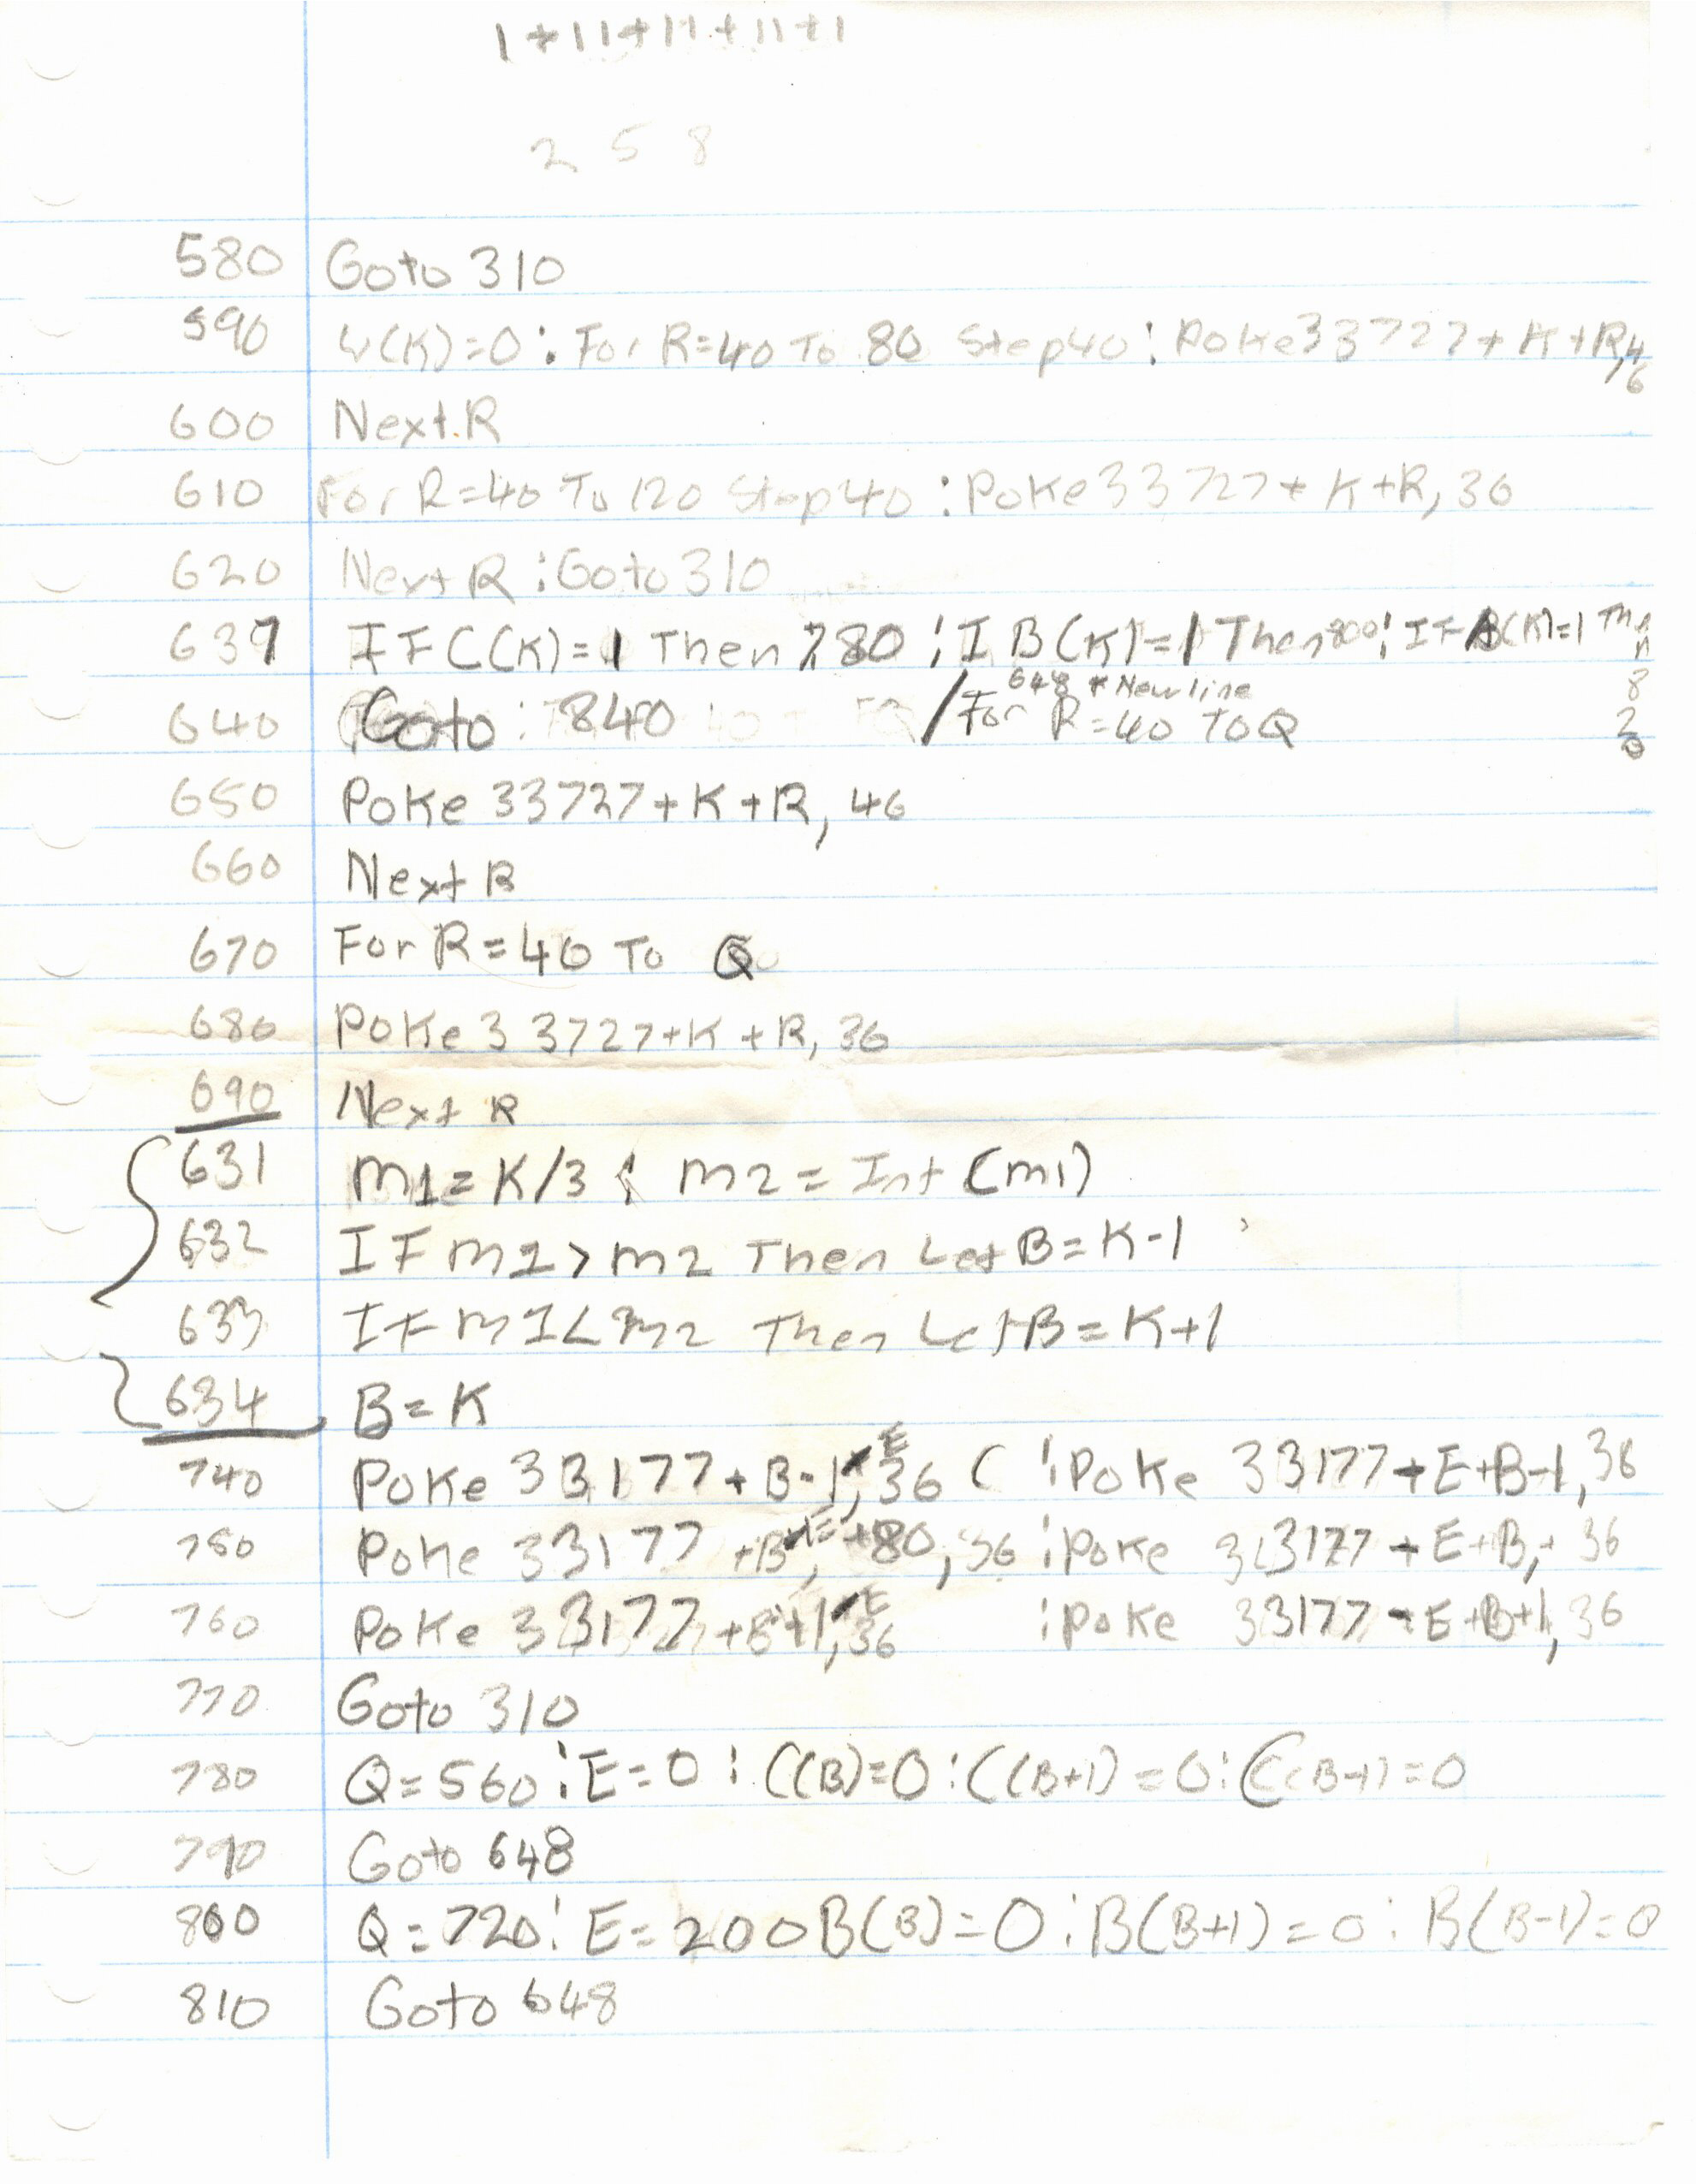 1+11+11+11+1
2 5 8
580 Goto 310
590 W(K)=0: For R=40 To 80 Step 40: Poke 33727+K+R,46
600 Next R
610 For R=40 To 120 Step 40: Poke 33727+K+R, 36
620 Next R: Goto 310
637 IF C(K)=1 Then 780: I B(K)=1 Then 800: IF A(K)=1 Then 820
648 * New line
640 Goto 840 / For R=40 To Q
650 Poke 33727+K+R, 46
660 Next R
670 For R=40 To Q
680 Poke 33727+K+R, 36
690 Next R
631 M1=K/3: M2=Int(M1)
632 IF M1>M2 Then Let B=K-1
633 IF M1<M2 Then Let B=K+1
634 B=K
740 Poke 33177+B-1+E,36 ( :Poke 33177+E+B-1,36
750 Poke 33177+B+E+80,36 :Poke 33177+E+B,36
760 Poke 33177+B+1+E,36 :Poke 33177+E+B+1,36
770 Goto 310
780 Q=560: E=0: C(B)=0: C(B+1)=0: C(B-1)=0
790 Goto 648
800 Q=720: E=200 B(B)=0: B(B+1)=0: B(B-1)=0
810 Goto 648